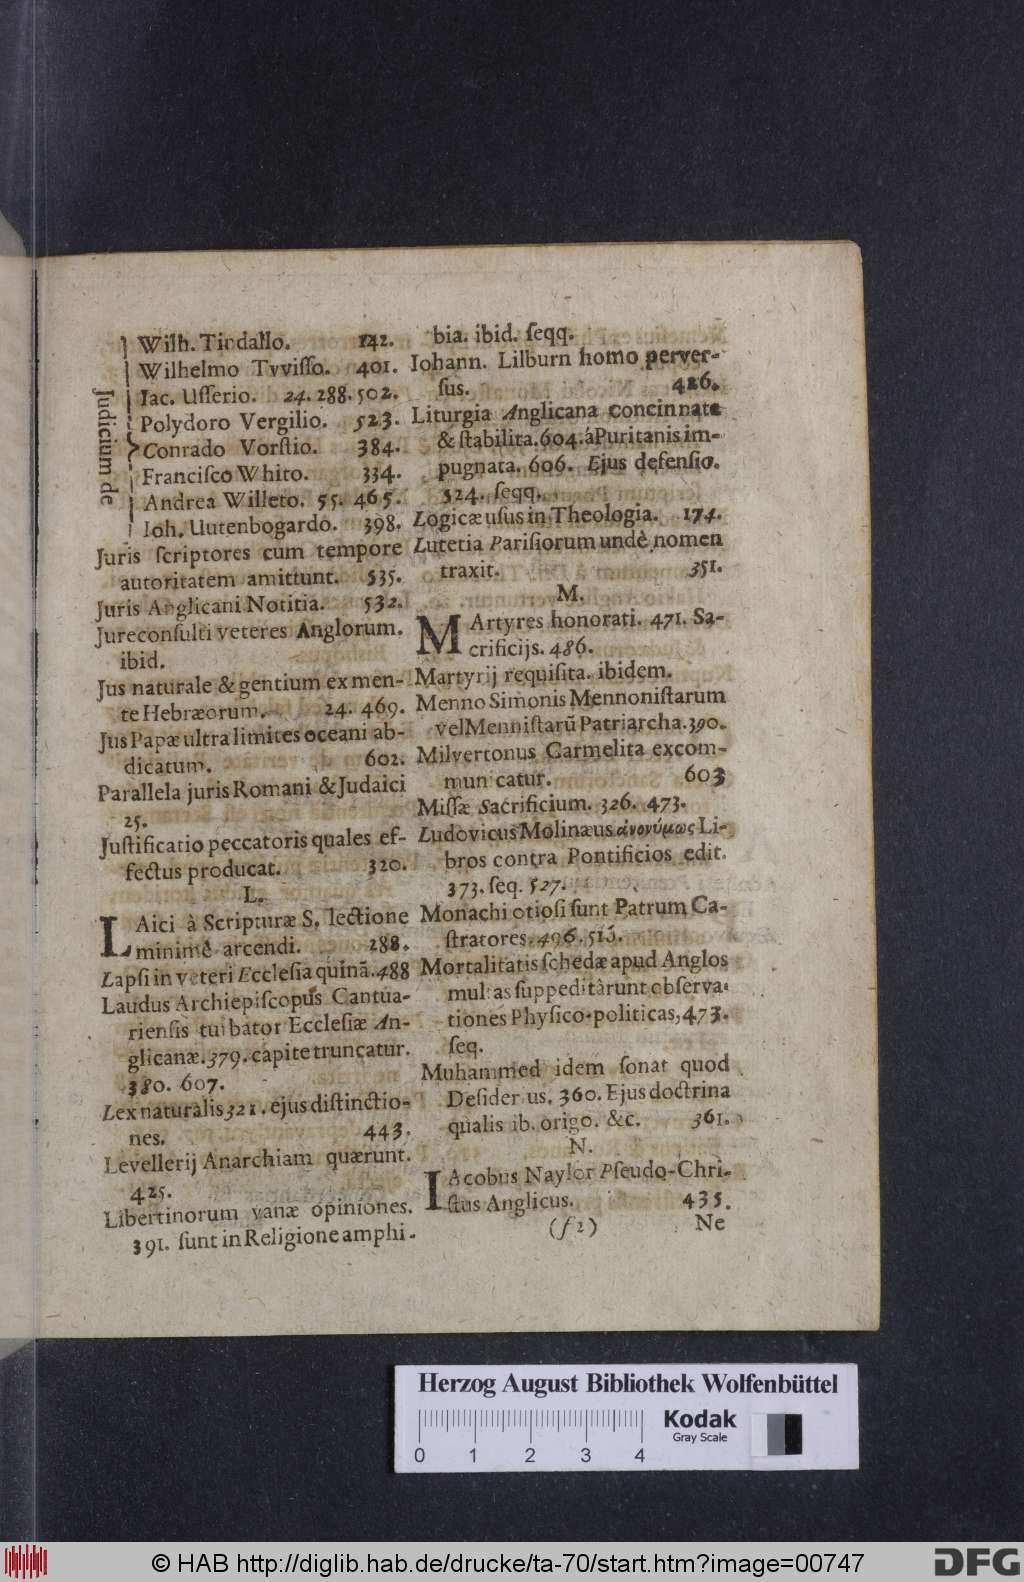 Judicium de
Wilh. Tindallo. 142.
Wilhelmo Tvvisso. 401.
Iac. Usserio. 24. 288. 502.
Polydoro Vergilio. 523.
Conrado Vorstio. 384.
Francisco Whito. 334.
Andrea Willeto. 55. 465.
Ioh. Uutenbogardo. 398.
Juris scriptores cum tempore
autoritatem amittunt. 535.
Juris Anglicani Notitia. 532.
Jureconsulti veteres Anglorum.
ibid.
Jus naturale & gentium ex men-
te Hebræorum. 24. 469.
Jus Papæ ultra limites oceani ab-
dicatum. 602.
Parallela juris Romani & Judaici
25.
Justificatio peccatoris quales ef-
fectus producat. 320.
L.
LAici à Scripturæ S. lectione
minimè arcendi. 288.
Lapsi in veteri Ecclesia quinã. 488
Laudus Archiepiscopus Cantua-
riensis turbator Ecclesiæ An-
glicanæ. 379. capite truncatur.
380. 607.
Lex naturalis 321. ejus distinctio-
nes. 443.
Levellerij Anarchiam quærunt.
425.
Libertinorum vanæ opiniones.
391. sunt in Religione amphi-
bia. ibid. seqq.
Iohann. Lilburn homo perver-
sus. 426.
Liturgia Anglicana concinnata
& stabilita. 604. á Puritanis im-
pugnata. 606. Ejus defensio.
324. seqq.
Logicæ usus in Theologia. 174.
Lutetia Parisiorum undè nomen
traxit. 351.
M.
MArtyres honorati. 471. Sa-
crificijs. 486.
Martyrij requisita. ibidem.
Menno Simonis Mennonistarum
vel Mennistarũ Patriarcha. 390.
Milvertonus Carmelita excom-
municatur. 603
Missæ Sacrificium. 326. 473.
Ludovicus Molinæus ἀνονύμως Li-
bros contra Pontificios edit.
373. seq. 527.
Monachi otiosi sunt Patrum Ca-
stratores. 496. 513.
Mortalitatis schedæ apud Anglos
multas suppeditârunt observa-
tiones Physico-politicas, 473.
seq.
Muhammed idem sonat quod
Desideratus. 360. Ejus doctrina
qualis ib. origo. &c. 361.
N.
IAcobus Naylor Pseudo-Chri-
stus Anglicus. 435.
(f 2) Ne
Herzog August Bibliothek Wolfenbüttel
Kodak
Gray Scale
0 1 2 3 4
© HAB http://diglib.hab.de/drucke/ta-70/start.htm?image=00747
DFG